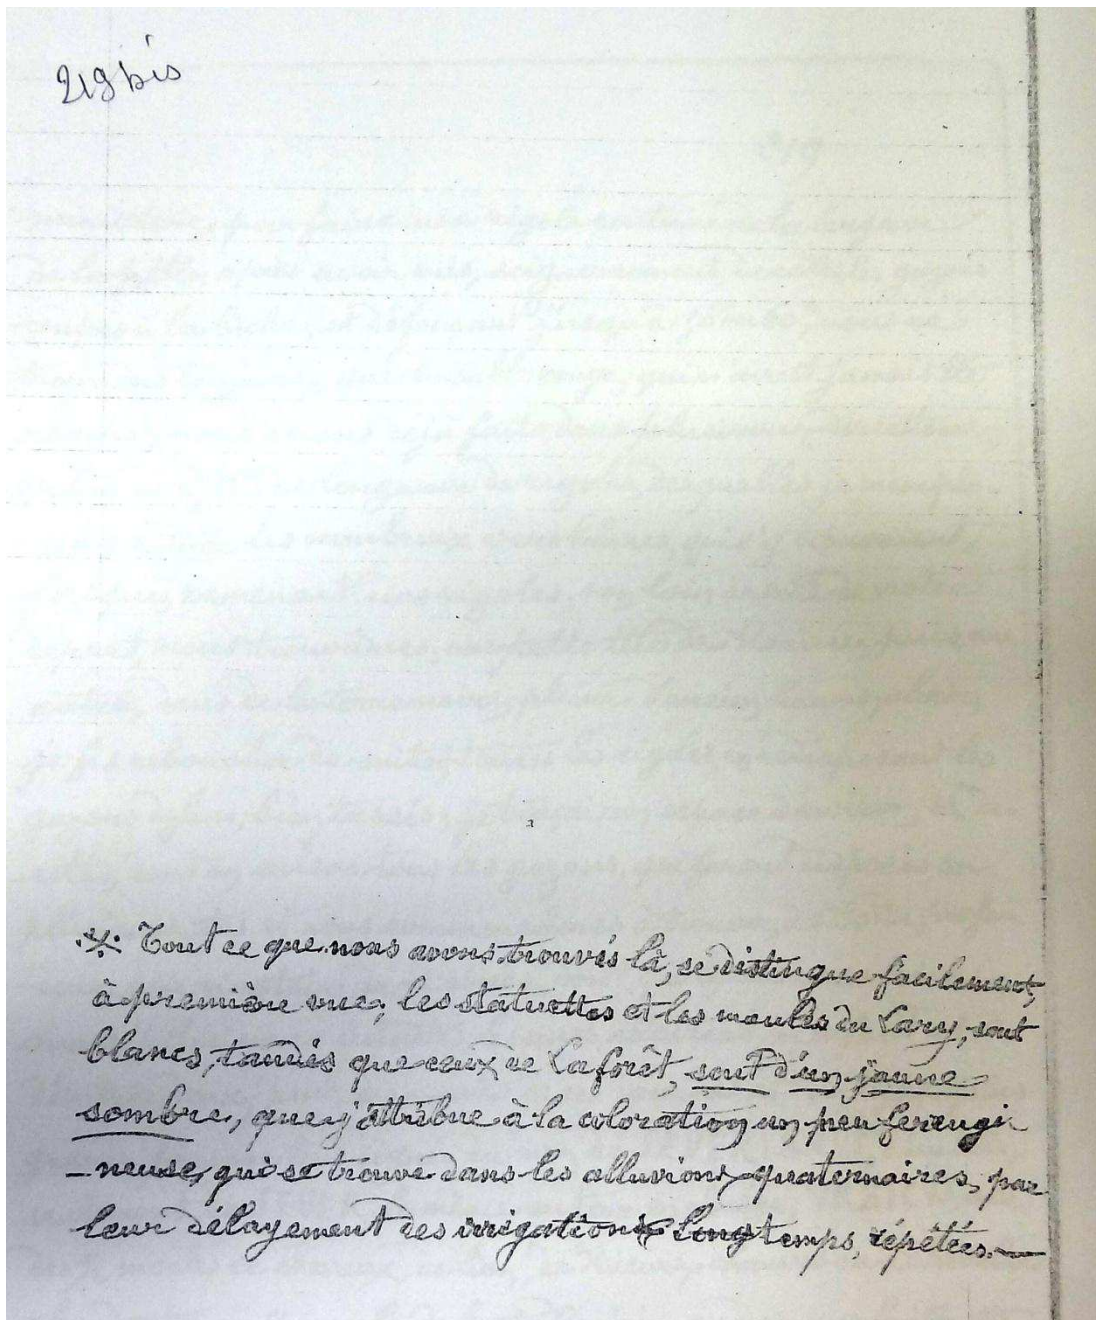 219 bis
.※. Tout ce que nous avons trouvés là, se distingue facilement,
à première vue; les statuettes et les moules du Lary, sont
blancs, tandis que ceux de Laforêt, sont d'un jaune
sombre, que j'attribue à la coloration un peu ferengi
– neuse, qui se trouve dans les alluvions quaternaires, par
leur délayement des irrigations longtemps, répétées. —